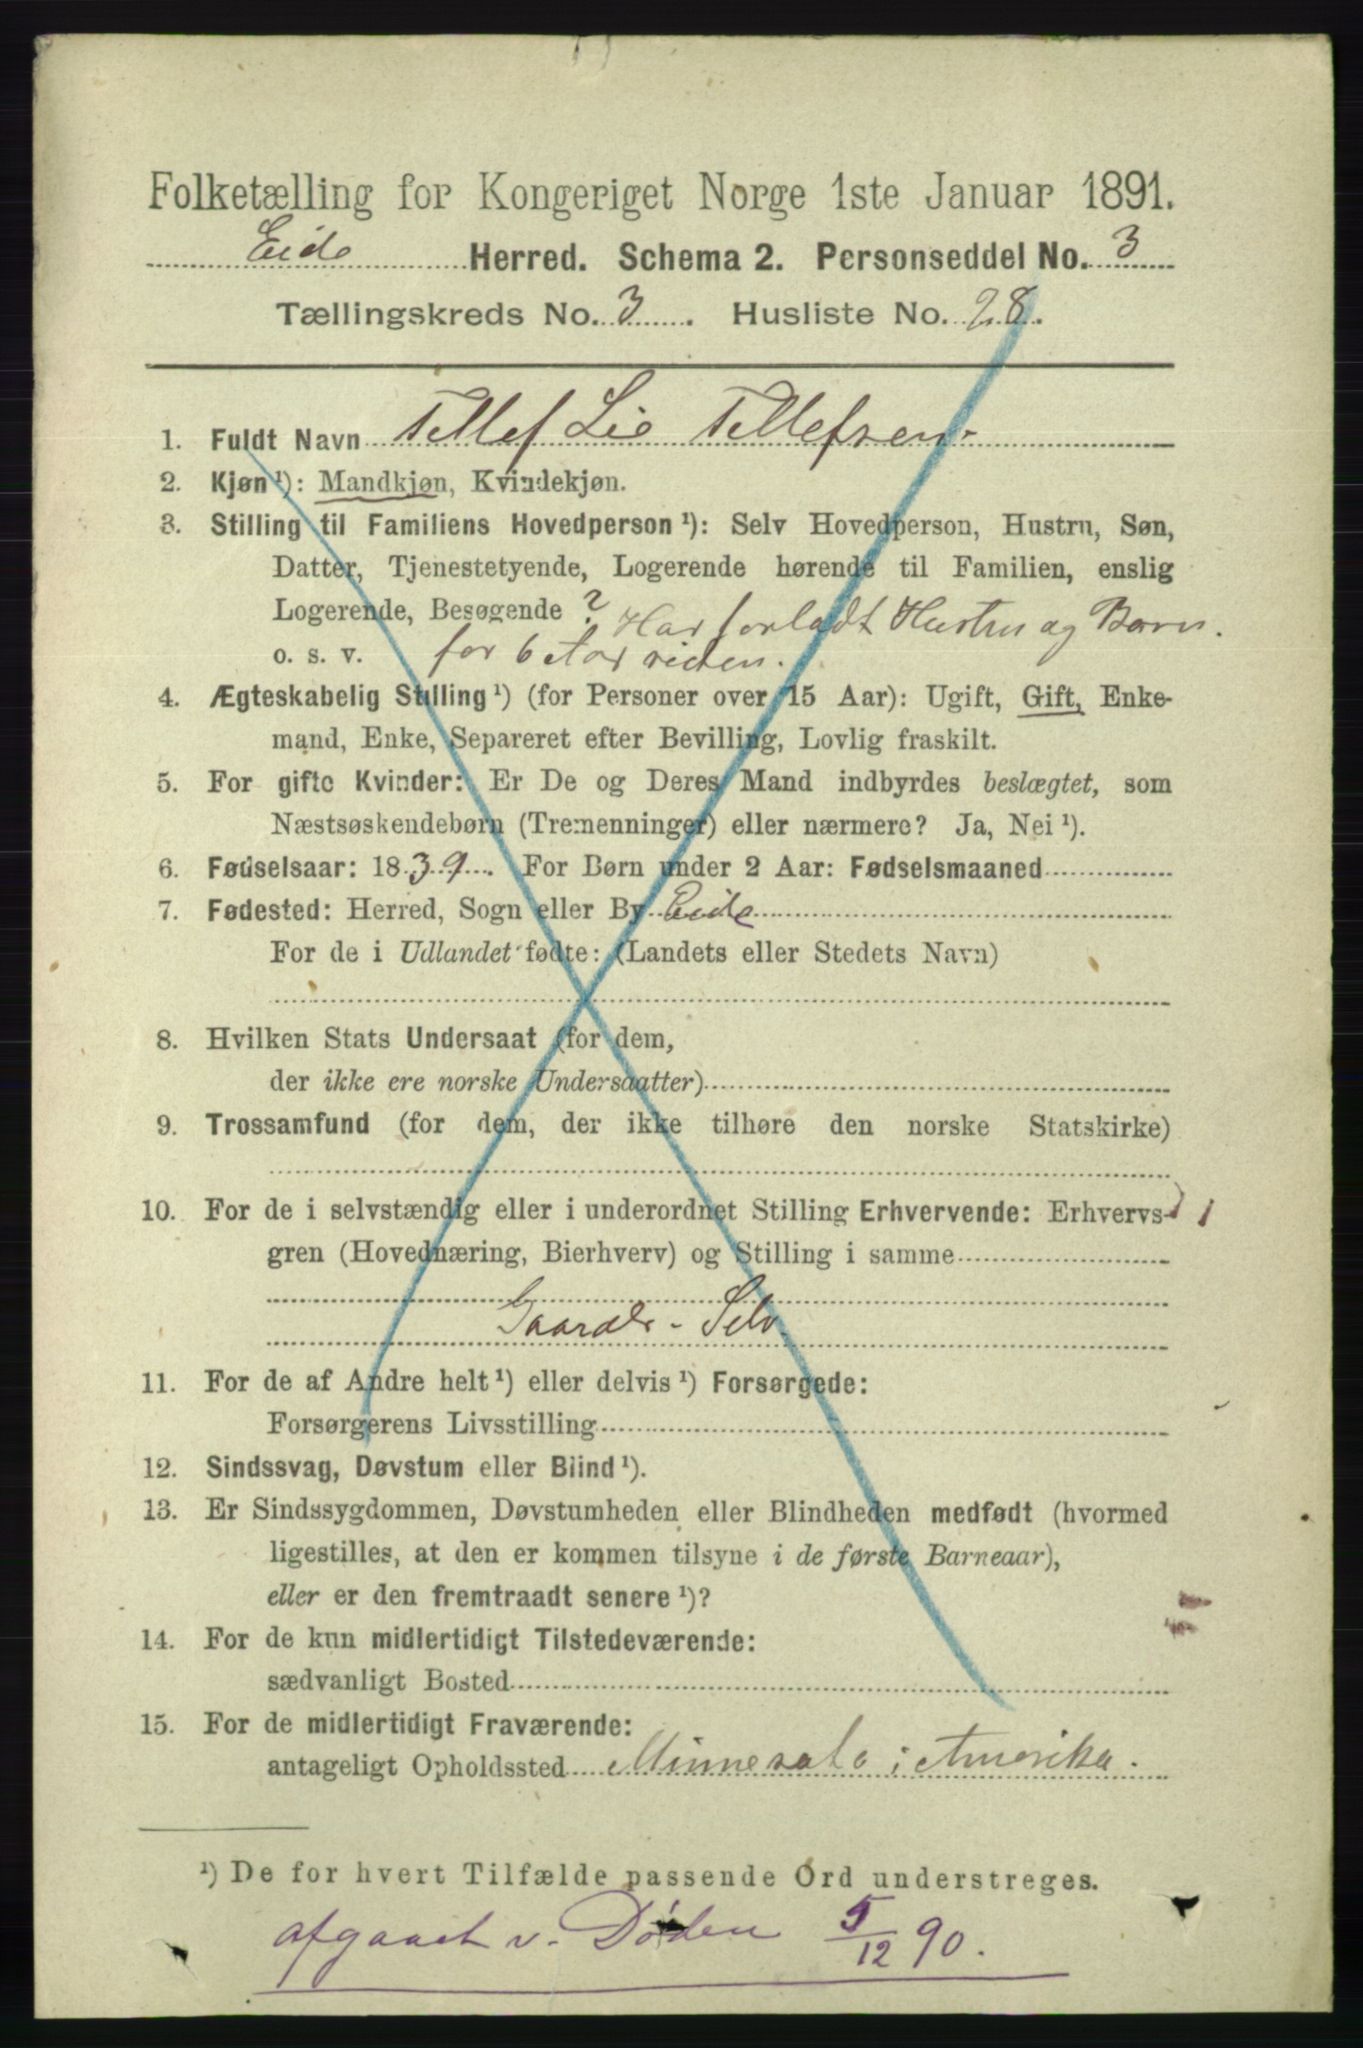 Folketælling for Kongeriget Norge 1ste Januar 1891.
Eide Herred. Schema 2. Personseddel No. 3
Tællingskreds No. 3. Husliste No. 28.
1. Fuldt Navn Tellef Lie Tellefsen
2. Kjøn ¹): Mandkjøn, Kvindekjøn.
3. Stilling til Familiens Hovedperson ¹): Selv Hovedperson, Hustru, Søn,
Datter, Tjenestetyende, Logerende hørende til Familien, enslig
Logerende, Besøgende ? Har forladt Hustru og Børn.
o. s. v. for 6 Aar siden.
4. Ægteskabelig Stilling ¹) (for Personer over 15 Aar): Ugift, Gift, Enke-
mand, Enke, Separeret efter Bevilling, Lovlig fraskilt.
5. For gifte Kvinder: Er De og Deres Mand indbyrdes beslægtet, som
Næstsøskendebørn (Tremenninger) eller nærmere? Ja, Nei ¹).
6. Fødselsaar: 1839. For Børn under 2 Aar: Fødselsmaaned
7. Fødested: Herred, Sogn eller By Eide
For de i Udlandet fødte: (Landets eller Stedets Navn)
8. Hvilken Stats Undersaat (for dem,
der ikke ere norske Undersaatter)
9. Trossamfund (for dem, der ikke tilhøre den norske Statskirke)
10. For de i selvstændig eller i underordnet Stilling Erhvervende: Erhvervs-
gren (Hovednæring, Bierhverv) og Stilling i samme
Gaardbr - Selv
11. For de af Andre helt ¹) eller delvis ¹) Forsørgede:
Forsørgerens Livsstilling
12. Sindssvag, Døvstum eller Blind ¹).
13. Er Sindssygdommen, Døvstumheden eller Blindheden medfødt (hvormed
ligestilles, at den er kommen tilsyne i de første Barneaar),
eller er den fremtraadt senere ¹)?
14. For de kun midlertidigt Tilstedeværende:
sædvanligt Bosted
15. For de midlertidigt Fraværende:
antageligt Opholdssted Minnesota i Amerika.
¹) De for hvert Tilfælde passende Ord understreges.
afgaaet v. Døden 5/12 90.